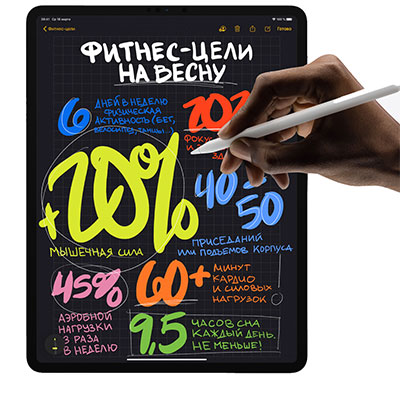 20:41 Ср 18 марта
Фитнес-цели
Готово
ФИТНЕС-ЦЕЛИ
НА ВЕСНУ
6 ДНЕЙ В НЕДЕЛЮ
ФИЗИЧЕСКАЯ
АКТИВНОСТЬ (БЕГ,
ВЕЛОСИПЕД, ТАНЦЫ...)
+20%
МЫШЕЧНАЯ СИЛА
40-50
ПРИСЕДАНИЙ
ИЛИ ПОДЪЕМОВ КОРПУСА
45%
АЭРОБНОЙ
НАГРУЗКИ
3 РАЗА
В НЕДЕЛЮ
60+ МИНУТ
КАРДИО
И СИЛОВЫХ
НАГРУЗОК
9,5 ЧАСОВ СНА
КАЖДЫЙ ДЕНЬ.
НЕ МЕНЬШЕ!